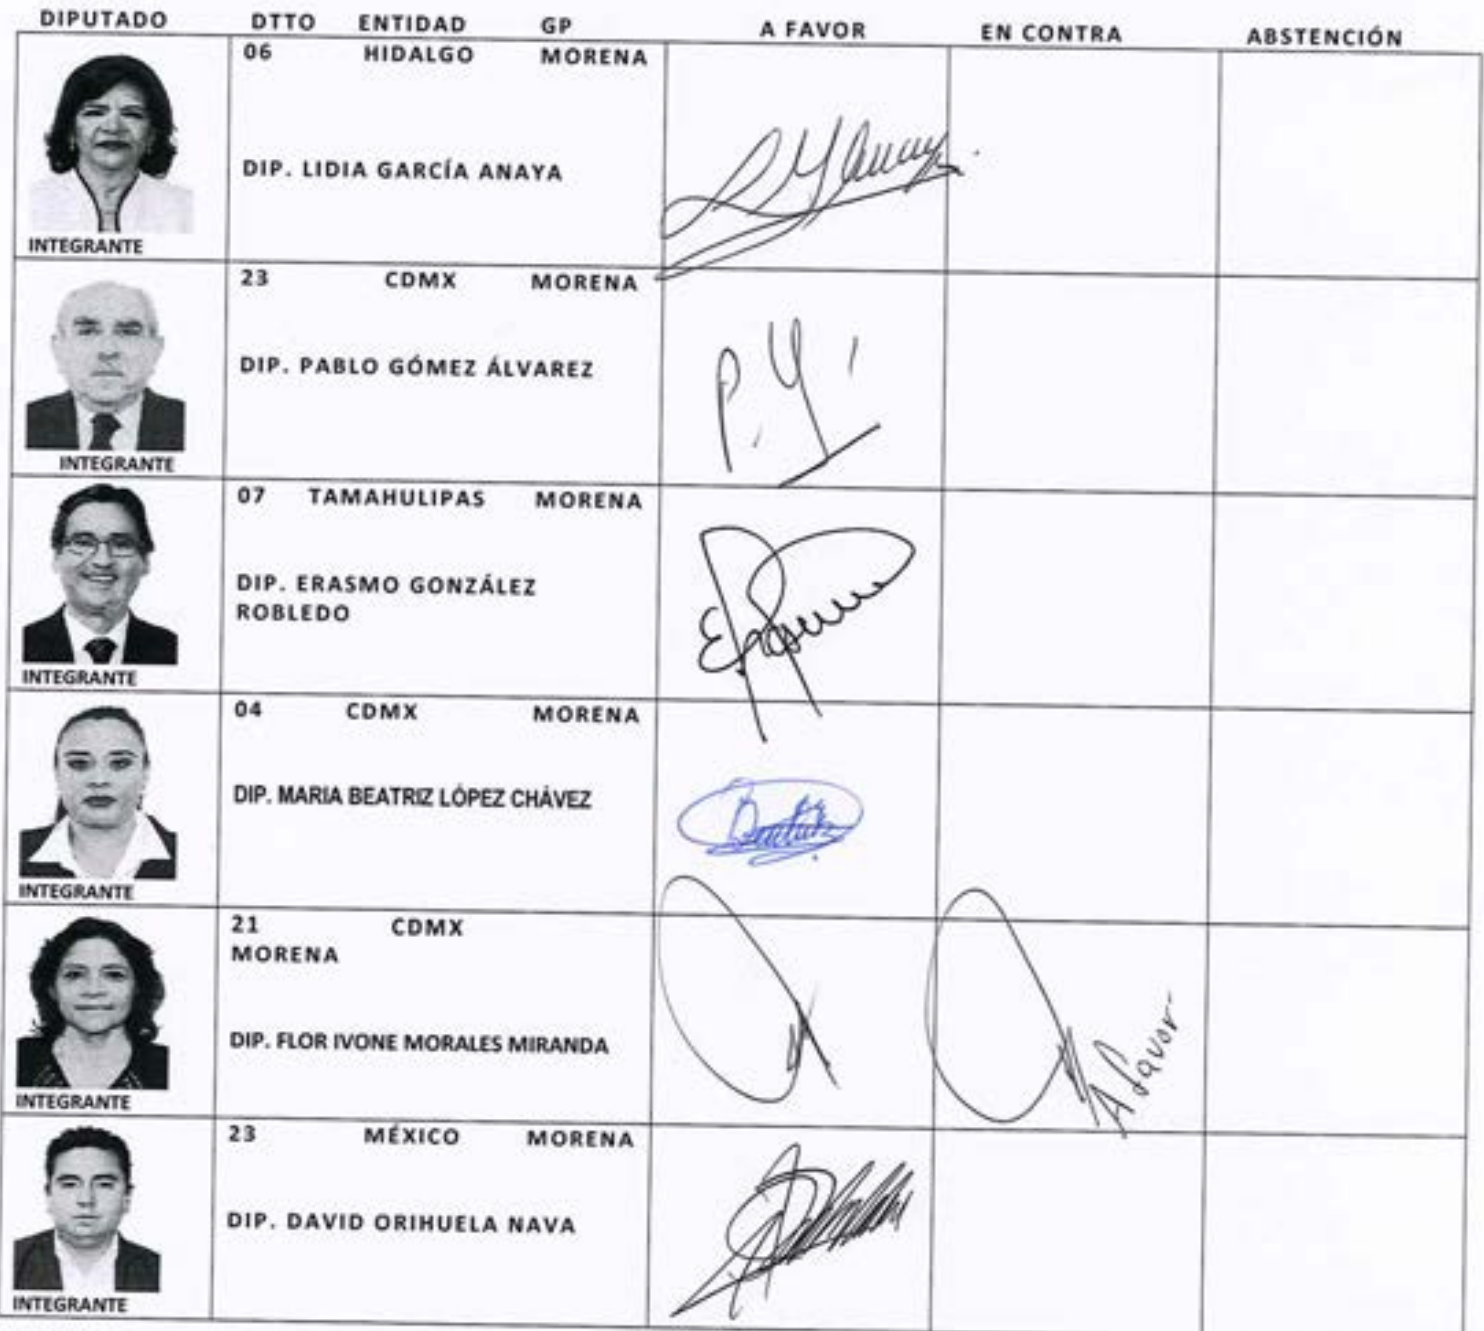 DIPUTADO DTTO ENTIDAD GP A FAVOR EN CONTRA ABSTENCIÓN
06 HIDALGO MORENA
DIP. LIDIA GARCÍA ANAYA
INTEGRANTE
23 CDMX MORENA
DIP. PABLO GÓMEZ ÁLVAREZ
INTEGRANTE
07 TAMAHULIPAS MORENA
DIP. ERASMO GONZÁLEZ
ROBLEDO
INTEGRANTE
04 CDMX MORENA
DIP. MARIA BEATRIZ LÓPEZ CHÁVEZ
INTEGRANTE
21 CDMX
MORENA
DIP. FLOR IVONE MORALES MIRANDA
A favor
INTEGRANTE
23 MÉXICO MORENA
DIP. DAVID ORIHUELA NAVA
INTEGRANTE